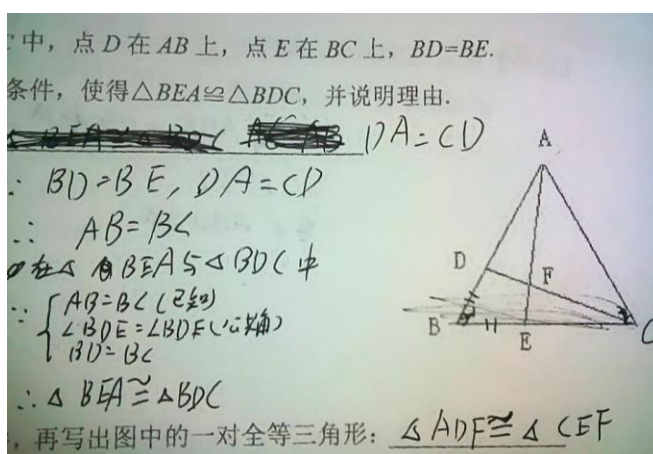 中，点 D 在 AB 上，点 E 在 BC 上，BD=BE.
条件，使得△BEA≌△BDC，并说明理由.
DA=CD
∵ BD=BE, DA=CD
∴ AB=BC
在△BEA与△BDC中
∵ { AB=BC(已知)
∠BDE=∠BDE(公共角)
BD=BC
∴ △BEA≅△BDC
再写出图中的一对全等三角形：△ADF≅△CEF
A
D
F
B
E
C